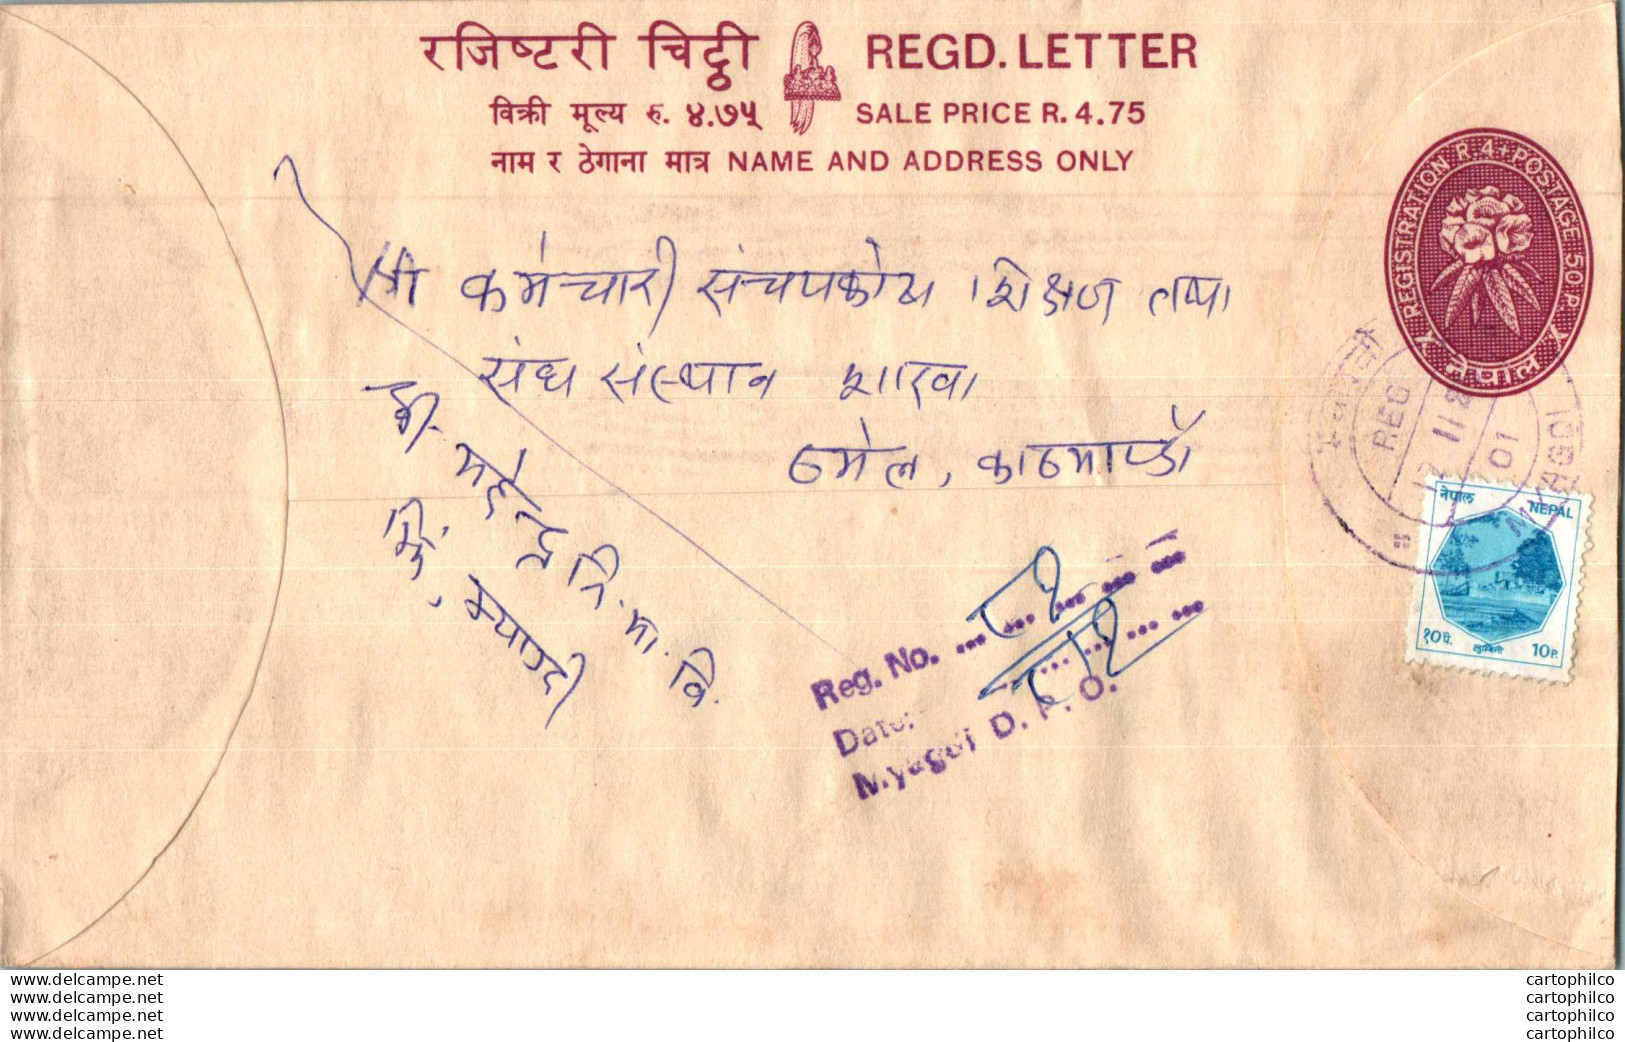 रजिष्टरी चिट्ठी REGD. LETTER
विक्री मूल्य रु. ४.७५ SALE PRICE R. 4.75
नाम र ठेगाना मात्र NAME AND ADDRESS ONLY
REGISTRATION R. 4 + POSTAGE 50 P.
नेपाल
श्री कर्मचारी संचयकोष शिक्षण तथा
संघ संस्थान शाखा
ठमेल, काठमाण्डौ
महेन्द्र नि. मा. वि.
म्याग्दी
Reg. No. ८१
Date:
Myagdi D. P. O.
REG
11
01
MYAGDI
नेपाल NEPAL
१०पै. लुम्बिनी 10P.
www.delcampe.net cartophilco
www.delcampe.net cartophilco
www.delcampe.net cartophilco
www.delcampe.net cartophilco